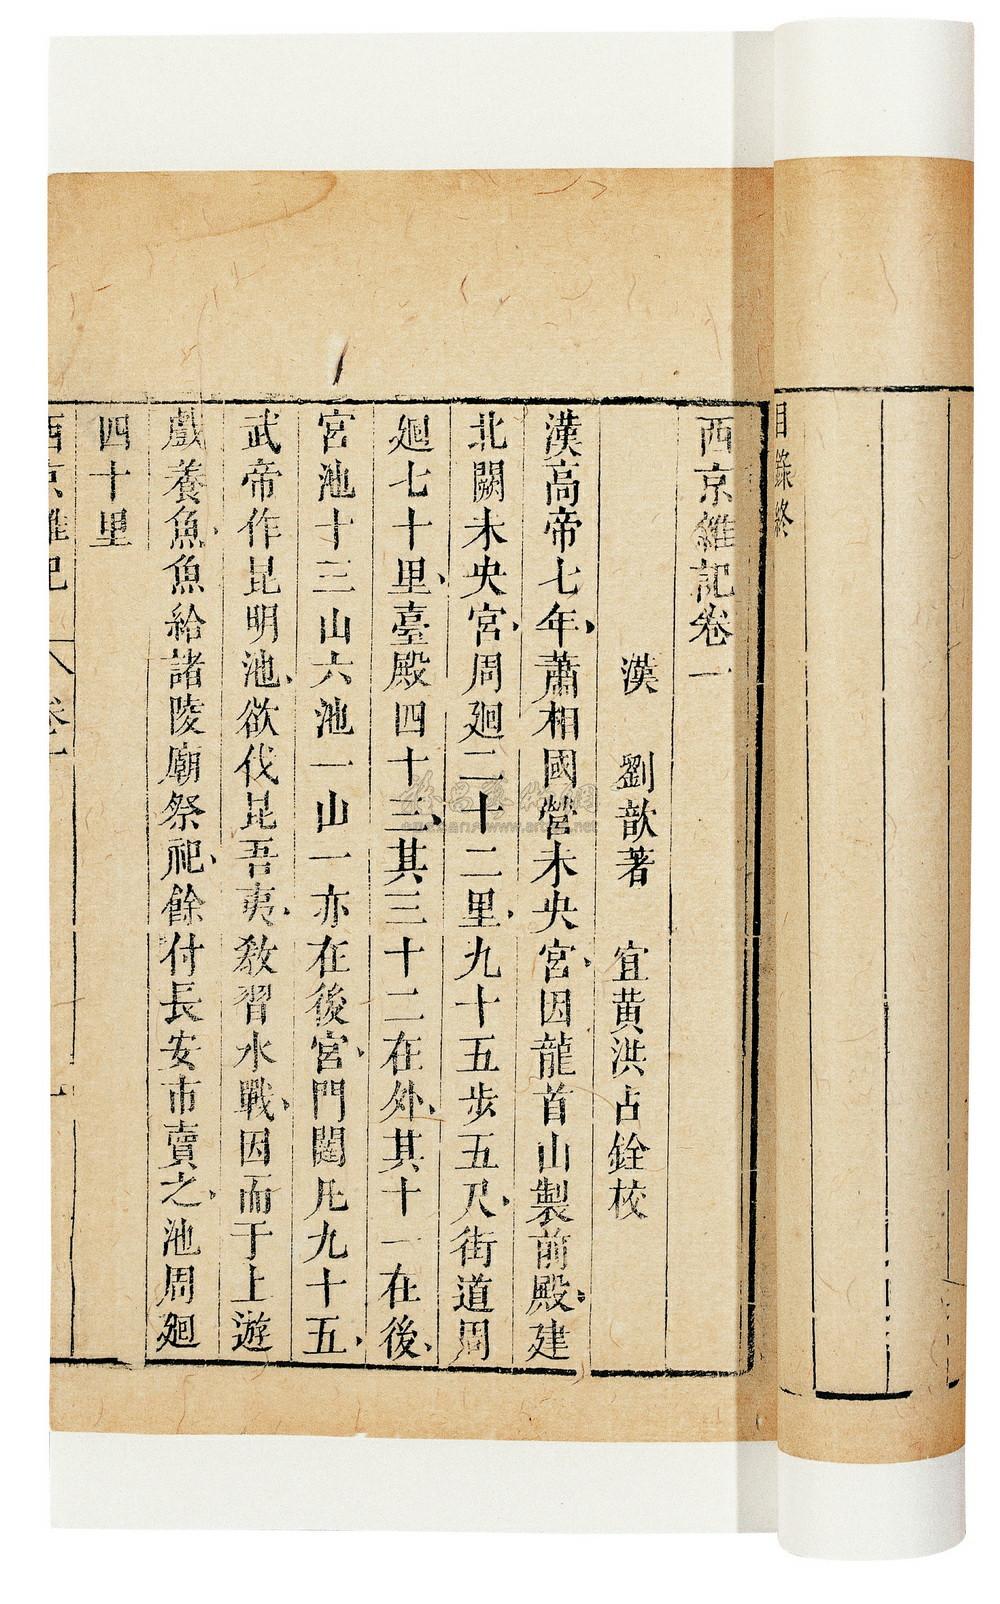 目錄終
西京雜記卷一
漢 劉歆著 宜黃洪占銓校
漢高帝七年蕭相國營未央宮因龍首山製前殿建
北闕未央宮周廻二十二里九十五步五尺街道周
廻七十里臺殿四十三其三十二在外其十一在後
宮池十三山六池一山一亦在後宮門闥凡九十五
武帝作昆明池欲伐昆吾夷教習水戰因而于上遊
戲養魚魚給諸陵廟祭祀餘付長安市賣之池周廻
四十里
西京雜記 卷一 一